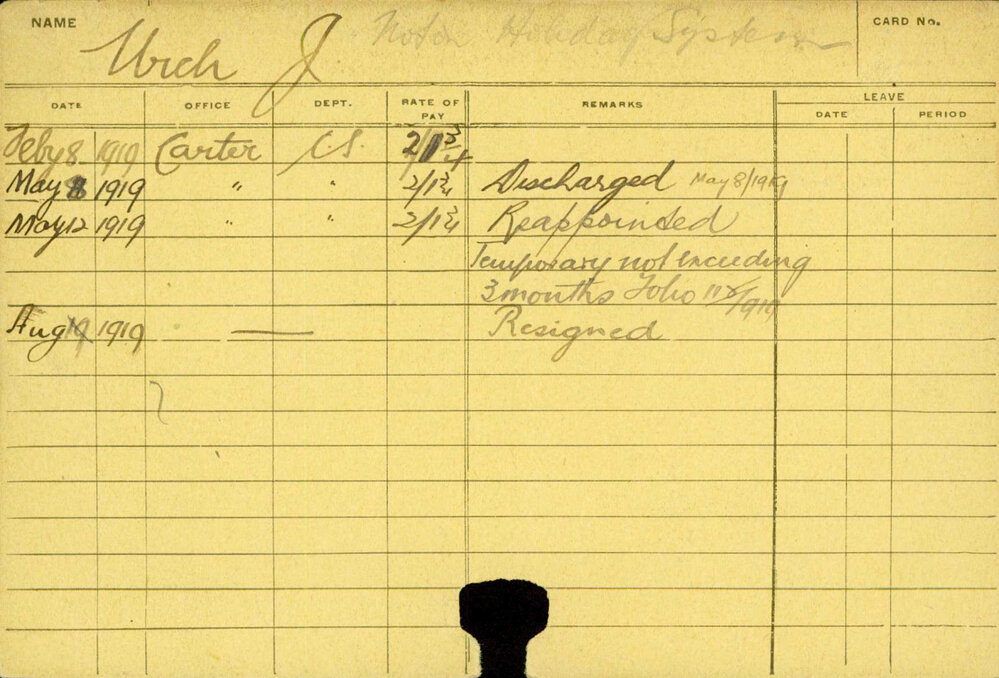 NAME Urch J. Not on Holiday System CARD No.
DATE OFFICE DEPT. RATE OF PAY REMARKS LEAVE
DATE PERIOD
Feby 8 1919 Carter C.S. 2/1 3/4
May 8 1919 " " 2/1 3/4 Discharged May 8/1919
May 12 1919 " " 2/1 3/4 Reappointed
Temporary not exceeding
3 months Folio /1919
Aug 19 1919 Resigned